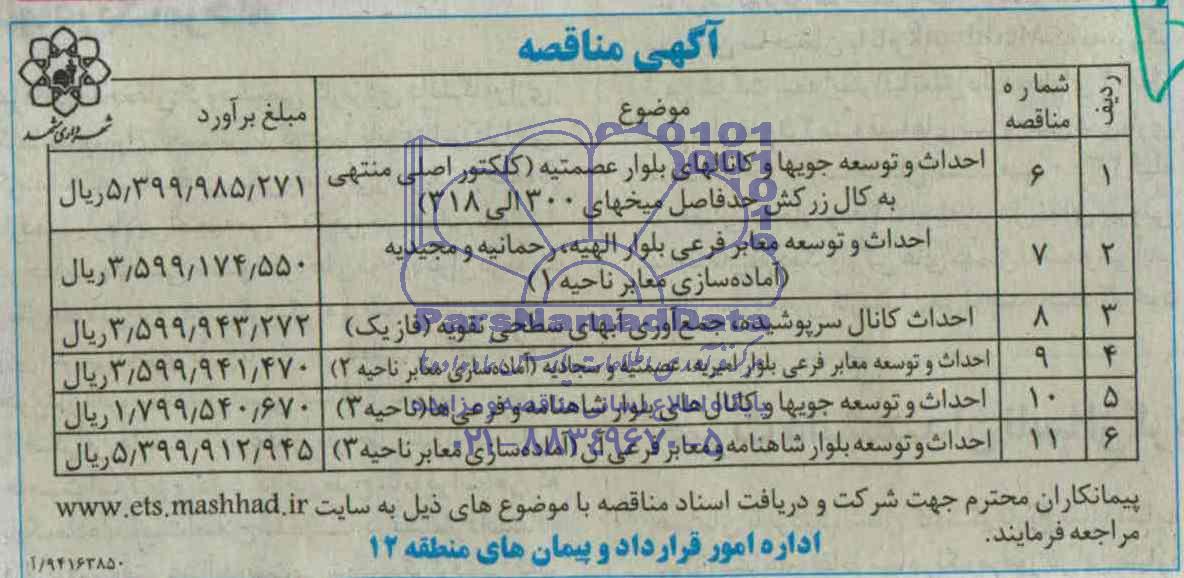 آگهی مناقصه
شهرداری مشهد
ردیف شماره مناقصه موضوع مبلغ برآورد
۱ ۶ احداث و توسعه جویها و کانالهای بلوار عصمتیه (کلکتور اصلی منتهی
به کال زرکش حدفاصل میخهای ۳۰۰ الی ۳۱۸) ۵٫۳۹۹٫۹۸۵٫۲۷۱ ریال
۲ ۷ احداث و توسعه معابر فرعی بلوار الهیه، رحمانیه و مجیدیه
(آماده‌سازی معابر ناحیه ۱) ۳٫۵۹۹٫۱۷۴٫۵۵۰ ریال
۳ ۸ احداث کانال سرپوشیده، جمع‌آوری آبهای سطحی نقویه (فاز یک) ۳٫۵۹۹٫۹۴۳٫۲۷۲ ریال
۴ ۹ احداث و توسعه معابر فرعی بلوار امیریه، عصمتیه و سجادیه (آماده‌سازی معابر ناحیه ۲) ۳٫۵۹۹٫۹۴۱٫۴۷۰ ریال
۵ ۱۰ احداث و توسعه جویها و کانال های بلوار شاهنامه و فرعی ها (ناحیه ۳) ۱٫۷۹۹٫۵۴۰٫۶۷۰ ریال
۶ ۱۱ احداث و توسعه بلوار شاهنامه و معابر فرعی آن (آماده‌سازی معابر ناحیه ۳) ۵٫۳۹۹٫۹۱۲٫۹۴۵ ریال
ParsNamadData
۰۲۱-۸۸۳۴۹۶۷۰-۵
پیمانکاران محترم جهت شرکت و دریافت اسناد مناقصه با موضوع های ذیل به سایت www.ets.mashhad.ir
مراجعه فرمایند.
اداره امور قرارداد و پیمان های منطقه ۱۲
۹۴۱۶۳۸۵۰/آ